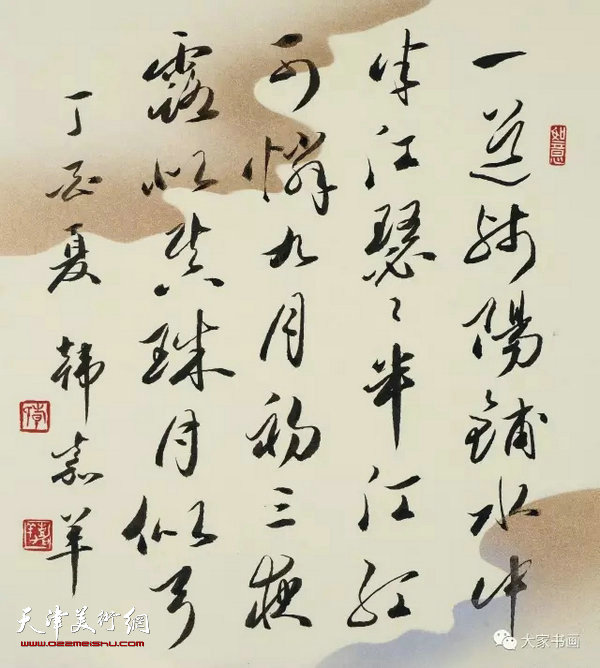 一道残陽鋪水中
半江瑟〻半江红
可憐九月初三夜
露似真珠月似弓
丁酉夏 韩嘉羊
如意
天津美術網
www.022meishu.com
大家书画